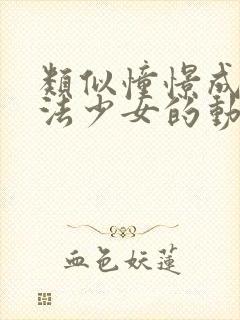 類似憧憬成
法少女的動
血色妖蓮